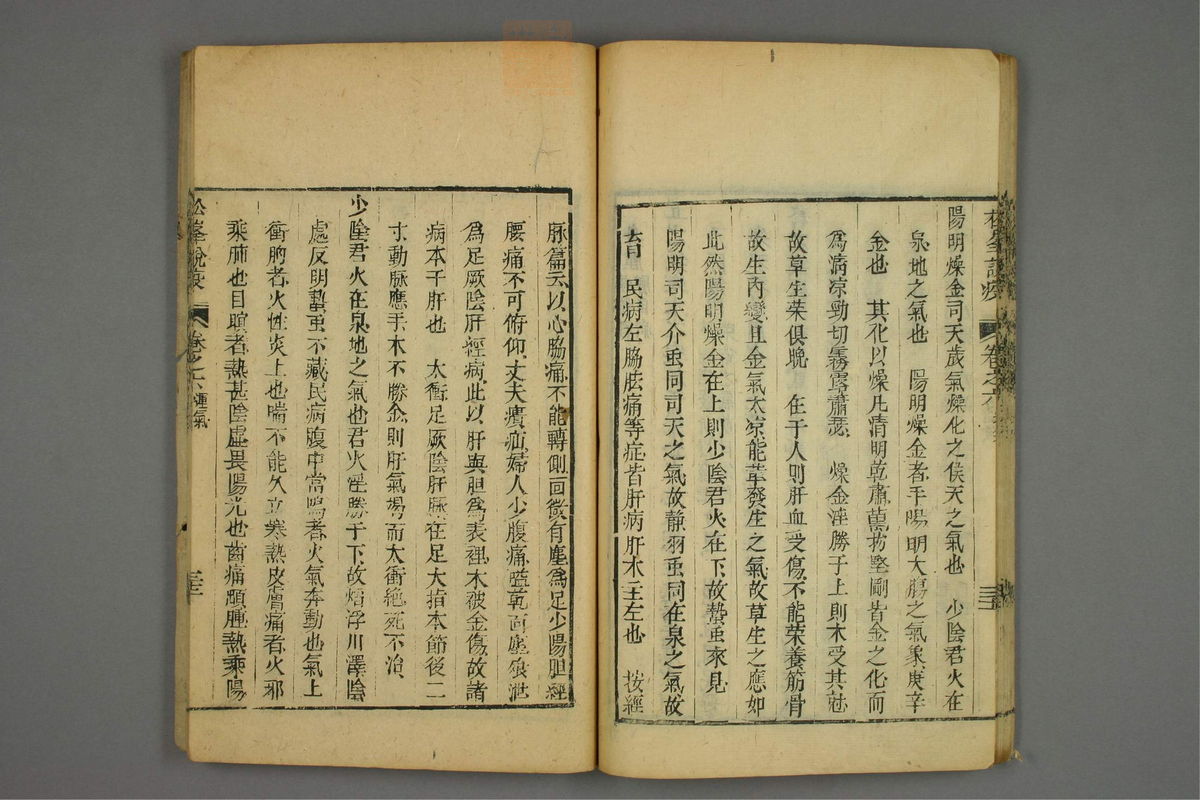 松峯說疫 卷之六
陽明燥金司天歲氣燥化之候天之氣也 少陰君火在
泉地之氣也 陽明燥金者手陽明大腸之氣象庚辛
金也 其化以燥凡清明乾肅萬物堅剛皆金之化而
為清凉勁切霧露蕭瑟 燥金淫勝于上則木受其
故草生榮俱晚 在于人則肝血受傷不能榮養筋骨
故生內變且金氣太凉能革發生之氣故草生之應如
此然陽明燥金在上則少陰君火在下故蟄虫來見
陽明司天介虫同司天之氣故静羽虫同在泉之氣故
育 民病左脇胠痛等症皆肝病肝木主左也 按經
脉篇云以心脇痛不能轉側面微有塵為足少陽胆經
腰痛不可俯仰丈夫㿗疝婦人少腹痛嗌乾面塵飱泄
為足厥陰肝經病此以肝與胆為表裡木被金傷故諸
病本于肝也 太衝足厥陰肝脉在足大指本節後二
寸動脉應手木不勝金則肝氣竭而太衝絶死不治
少陰君火在泉地之氣也君火淫勝于下故熖浮川澤陰
處反明蟄虫不藏民病腹中常鳴者火氣奔動也氣上
衝胸者火性炎上也喘不能久立寒熱皮膚痛者火邪
乘肺也目瞑者熱甚陰虛畏陽光也齒痛䪼腫熱乘陽
松峯說疫 卷之六 運氣